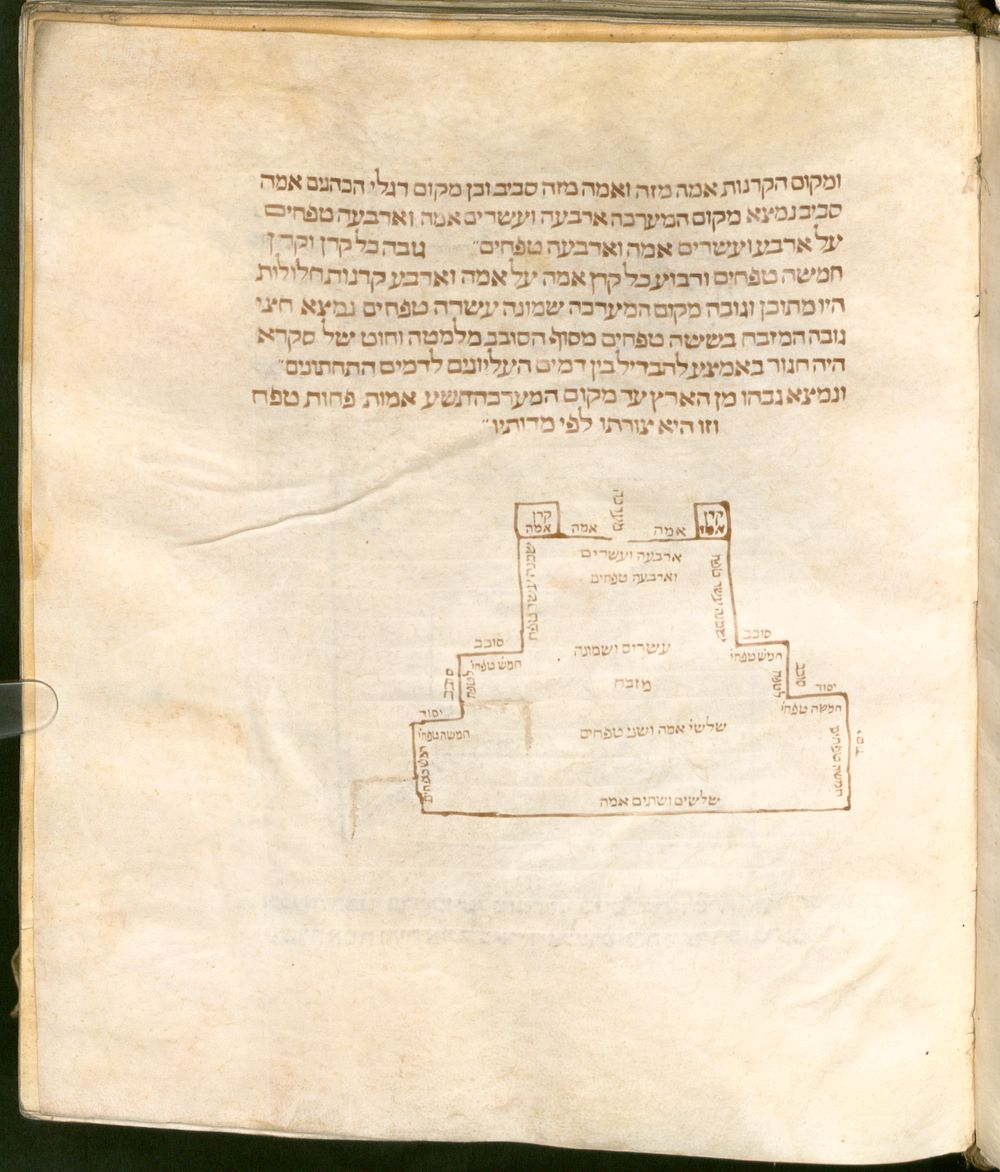 ומקום הקרנות אמה מזה ואמה מזה סביב וכן מקום רגלי הכהנים אמה
סביב נמצא מקום המערכה ארבעה ועשרים אמה וארבעה טפחים
על ארבע ועשרים אמה וארבעה טפחים״ גובה כל קרן וקרן
חמשה טפחים ורבוע כל קרן אמה על אמה וארבע קרנות חלולות
היו מתוכן וגובה מקום המערכה שמונה עשרה טפחים נמצא חצי
גובה המזבח בששה טפחים מסוף הסובב מלמטה וחוט של סקרא
היה חגור באמצע להבדיל בין דמים העליונים לדמים התחתונים״
ונמצא גבהו מן הארץ עד מקום המערכה תשע אמות פחות טפח
וזו היא צורתו לפי מדותיו״
מערכה
קרן
קרן
אמה
אמה
אמה
ארבעה ועשרים
וארבעה טפחים
סובב
סובב
חמש טפחי׳
חמש טפחי׳
עשרים ושמונה
מזבח
סובב
סובב
יסוד
יסוד
חמשה טפחי׳
חמשה טפחי׳
שלשי׳ אמה ושני טפחים
חמשה טפחים
שלשים ושתים אמה